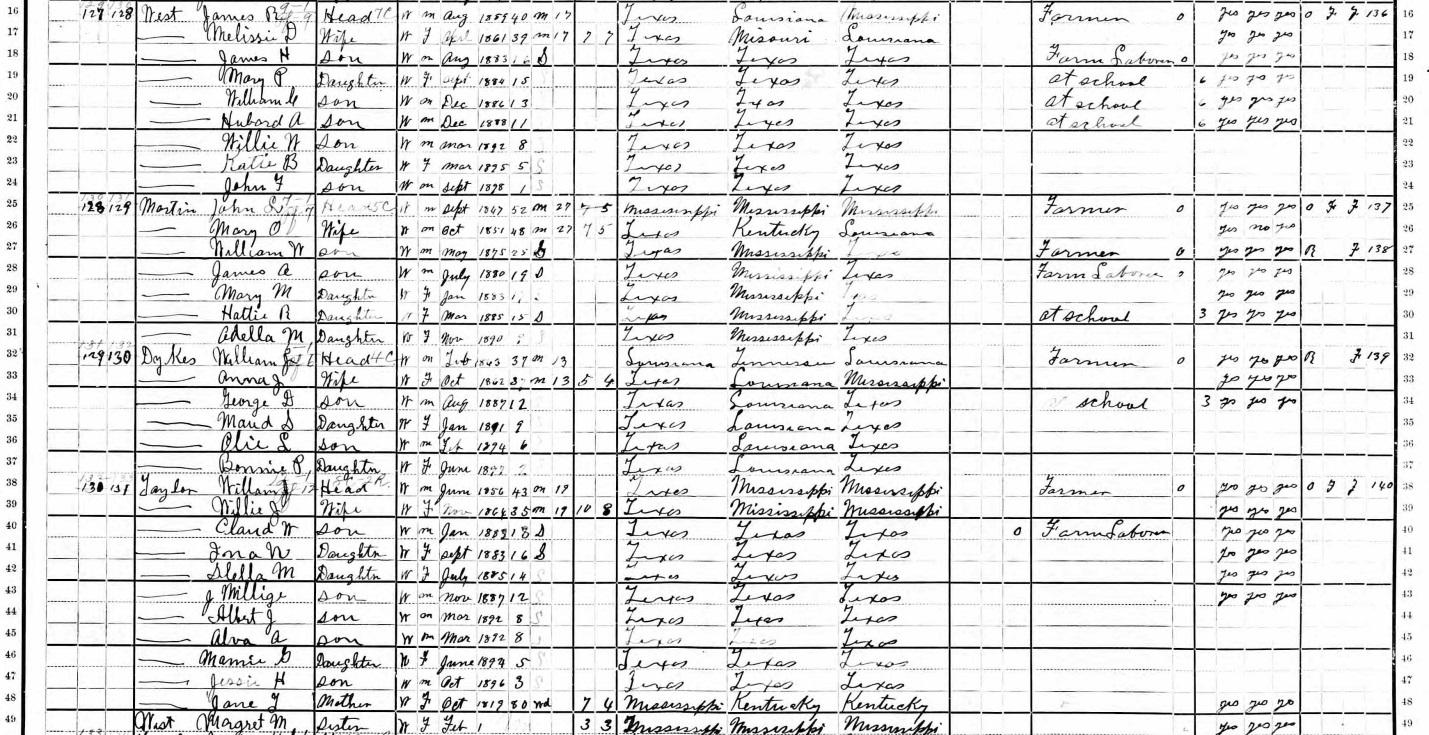 16 127 128 West James R Head W m Aug 1859 40 m 17 Texas Louisiana Mississippi Farmer o yes yes yes O F F 136 16
17 — Melissie D Wife W F April 1861 39 m 17 7 7 Texas Misouri Louisiana yes yes yes 17
18 — James H son W m Aug 1883 16 S Texas Texas Texas Farm Laborer o yes yes yes 18
19 — Mary P Daughter W F Sept 1884 15 Texas Texas Texas at school 6 yes yes yes 19
20 — William C son W m Dec 1886 13 Texas Texas Texas at school 6 yes yes yes 20
21 — Hubard A son W m Dec 1888 11 Texas Texas Texas at school 6 yes yes yes 21
22 — Willie W Son W m mar 1892 8 Texas Texas Texas 22
23 — Katie B Daughter W F mar 1895 5 S Texas Texas Texas 23
24 — John F son W m Sept 1898 1 Texas Texas Texas 24
25 128 129 Martin John S Head W m Sept 1847 52 m 27 7 5 Mississippi Mississippi Mississippi Farmer o yes yes yes O F F 137 25
26 — Mary O Wife W m Oct 1851 48 m 27 7 5 Texas Kentucky Louisiana yes no yes 26
27 — William W son W m may 1875 25 S Texas Mississippi Farmer o yes yes yes R F 138 27
28 — James A son W m July 1880 19 S Texas Mississippi Texas Farm Laborer o yes yes yes 28
29 — Mary M Daughter W F Jan 1883 Texas Mississippi yes yes yes 29
30 — Hattie R Daughter F Mar 1885 15 S Texas Mississippi at school 3 yes yes yes 30
31 — Adella M Daughter W F Nov 1890 Texas Mississippi Texas 31
32 129 130 Dykes William Head W m Feb 1863 37 m 13 Louisiana Louisiana Farmer o yes yes yes R F 139 32
33 — Anna J Wife W F Oct 1862 37 m 13 5 4 Texas Louisiana Mississippi yes yes yes 33
34 — George D son W m Aug 1887 12 Texas Louisiana Texas school 3 yes yes yes 34
35 — Maud S Daughter W F Jan 1891 9 Texas Louisiana Texas 35
36 — L son W m Feb 1894 6 Texas Louisiana Texas 36
37 — Bonnie P Daughter W F June 1897 2 Texas Louisiana Texas 37
38 130 131 Taylor William J Head W m June 1856 43 m 19 Texas Mississippi Mississippi Farmer o yes yes yes O F F 140 38
39 — Willie J Wife W F Nov 1864 35 m 19 10 8 Texas Mississippi Mississippi yes yes yes 39
40 — Claud W son W m Jan 1882 18 S Texas Texas Texas o Farm Laborer yes yes yes 40
41 — N Daughter W F sept 1883 16 S Texas Texas Texas yes yes yes 41
42 — Stella M Daughter W F July 1885 14 S Texas Texas Texas yes yes yes 42
43 — J Millige son W m nov 1887 12 S Texas Texas Texas yes yes yes 43
44 — Albert J son W m mar 1892 8 S Texas Texas Texas 44
45 — Alva A son W m Mar 1892 8 Texas Texas Texas 45
46 — Mamie G Daughter W F June 1894 5 S Texas Texas Texas 46
47 — Jessie H son W m Oct 1896 3 S Texas Texas Texas 47
48 — Jane Mother W F Oct 1819 80 wd 7 4 Mississippi Kentucky Kentucky yes yes yes 48
49 West Margret M Sister W F Feb 1 3 3 Mississippi Mississippi Mississippi yes yes yes 49